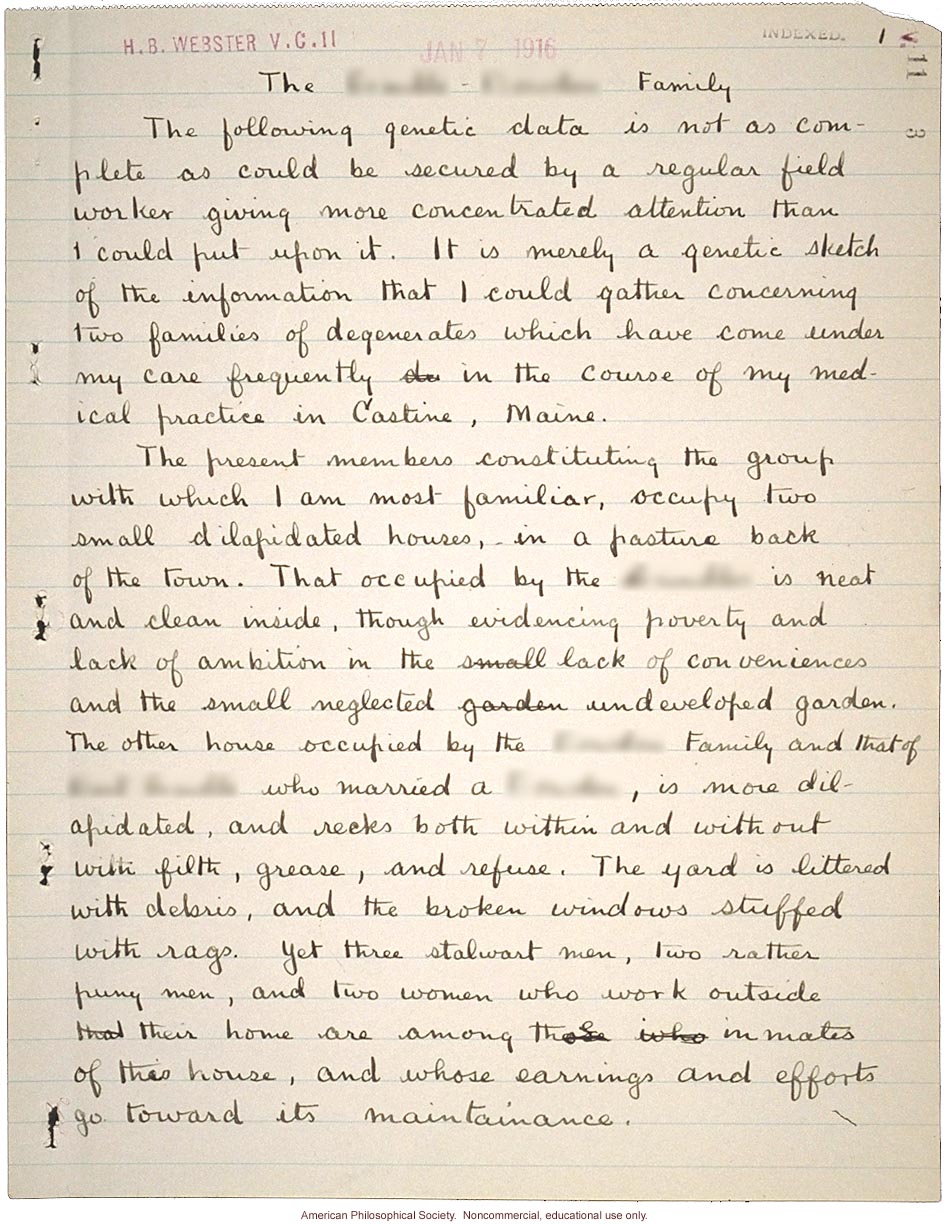 H. B. WEBSTER V.C.11
JAN 7 1916
INDEXED. 1
11
3
The - Family
The following genetic data is not as com-
plete as could be secured by a regular field
worker giving more concentrated attention than
I could put upon it. It is merely a genetic sketch
of the information that I could gather concerning
two families of degenerates which have come under
my care frequently du in the course of my med-
ical practice in Castine, Maine.
The present members constituting the group
with which I am most familiar, occupy two
small dilapidated houses, - in a pasture back
of the town. That occupied by the is neat
and clean inside, though evidencing poverty and
lack of ambition in the small lack of conveniences
and the small neglected garden undeveloped garden.
The other house occupied by the Family and that of
who married a , is more dil-
apidated, and reeks both within and without
with filth, grease, and refuse. The yard is littered
with debris, and the broken windows stuffed
with rags. Yet three stalwart men, two rather
puny men, and two women who work outside
that their home are among those who inmates
of this house, and whose earnings and efforts
go toward its maintainance.
American Philosophical Society. Noncommercial, educational use only.